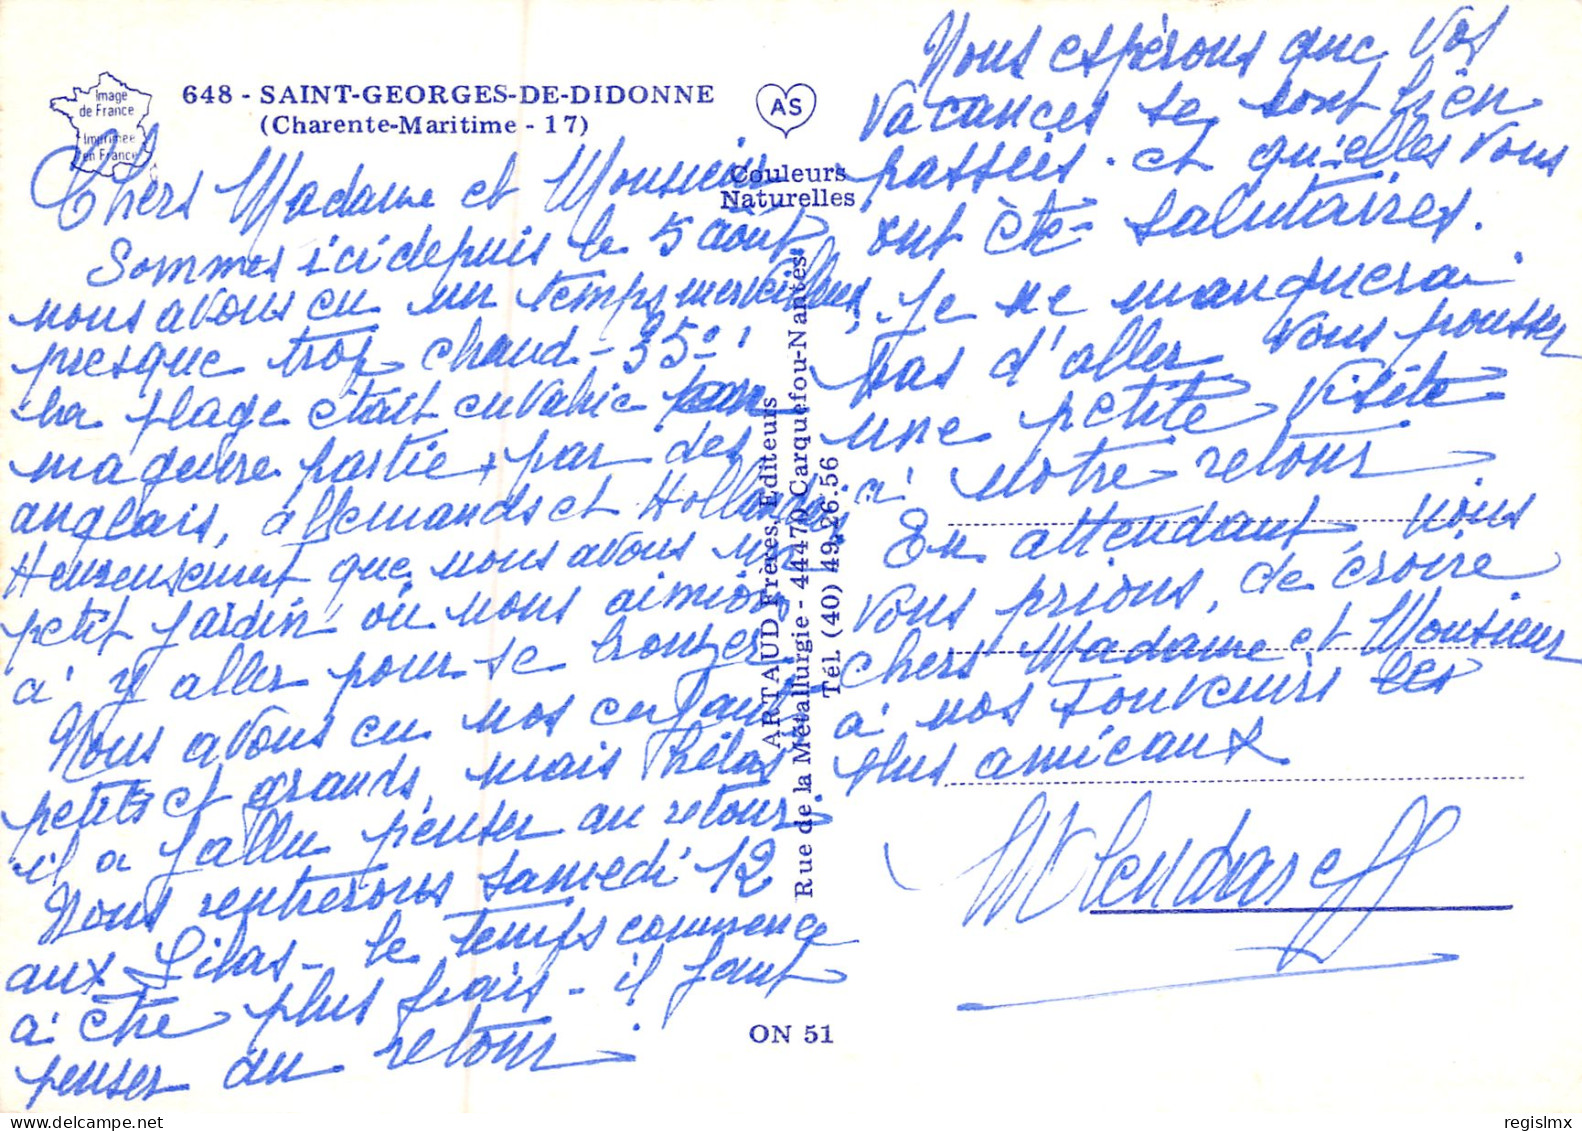 Image
de France
Imprimée
en France
648 - SAINT-GEORGES-DE-DIDONNE
(Charente-Maritime - 17)
AS
Couleurs
Naturelles
Chers Madame et Monsieur
Sommes ici depuis le 5 août
nous avons eu un temps merveilleux,
presque trop chaud - 35° !
La plage était envahie
majeure partie, par des
anglais, allemands et Hollandais
Heureusement que nous avons un
petit jardin où nous aimions
à y aller pour se bronzer
Nous avons eu nos enfants
petits et grands, mais hélas
il a fallu penser au retour.
Nous rentrerons samedi 12
aux Lilas - le temps commence
à être plus frais - il faut
penser au retour.
Nous espérons que vos
vacances se sont bien
passées - et qu'elles vous
ont été salutaires.
Je ne manquerai
pas d'aller vous pousser
une petite visite
à notre retour
En attendant, nous
vous prions, de croire
chers Madame et Monsieur
à nos souvenirs les
plus amicaux
ARTAUD Frères, Editeurs
Rue de la Métallurgie - 44470 Carquefou-Nantes
Tél. (40) 49.26.56
ON 51
regislmx